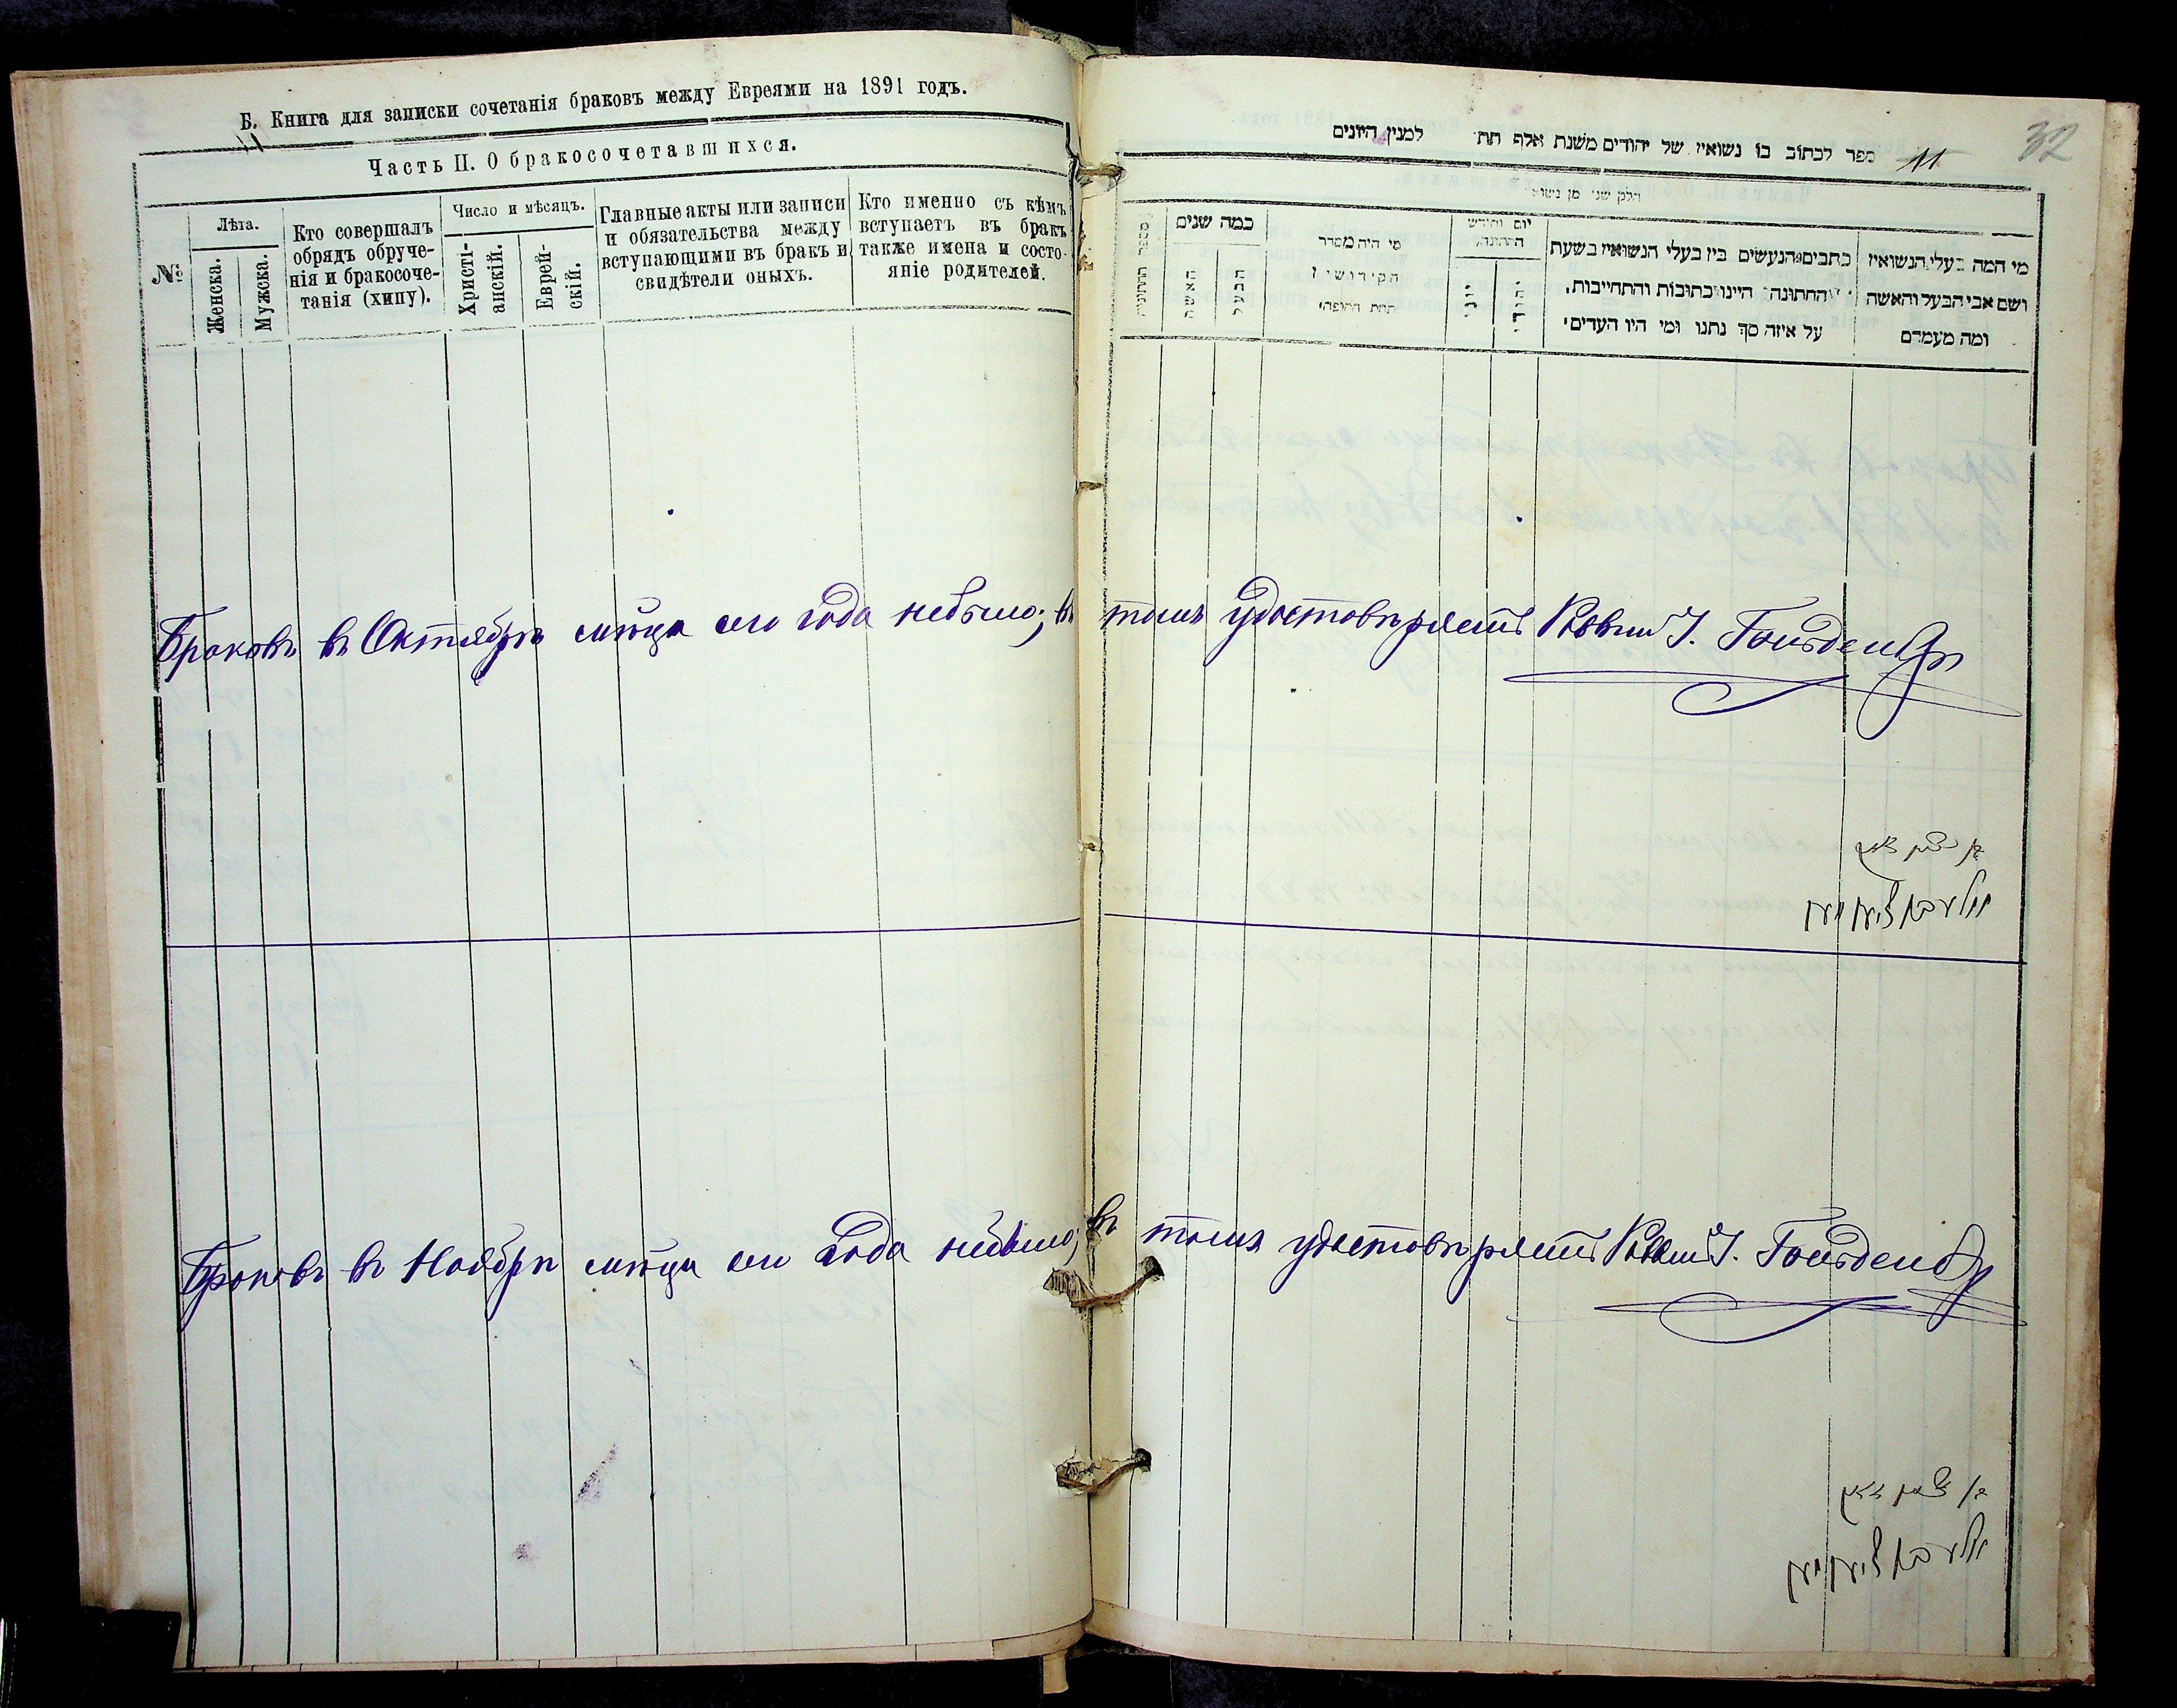 Б. Книга для записки сочетанія браковъ между Евреями на 1891 годъ.
11
Часть II. О бракосочетавшихся.
№
Лѣта.
Женска.
Мужска.
Кто совершалъ
обрядъ обруче-
нія и бракосоче-
танія (хипу).
Число и мѣсяцъ.
Христі-
анскій.
Еврей-
скій.
Главные акты или записи
и обязательства между
вступающими въ бракъ и
свидѣтели оныхъ.
Кто именно съ кѣмъ
вступаетъ въ бракъ
также имена и состо-
яніе родителей.
32
ספר לכתוב בו נשואין של יהודים משנת אלף תת למנין היונים
11
חלק שני מן נשואי
מספר החתונות
כמה שנים
האשה
הבעל
מי היה מסדר
הקידושין
תחת החופה׳
יום וחודש
החתונה׳
יוני
יהודי
כתבים הנעשים בין בעלי הנשואין בשעת
החתונה היינו כתובות והתחייבות,
על איזה סך נתנו ומי היו העדים׳
מי המה בעלי הנשואין
ושם אבי הבעל והאשה
ומה מעמדם
Браковъ въ Октябрѣ мѣцѣ сего года небыло; въ томъ удостовѣряетъ Раввинъ І. Гольденб
Браковъ въ Ноябрѣ мѣцѣ сего года небыло; въ томъ удостовѣряетъ Раввинъ І. Гольденб